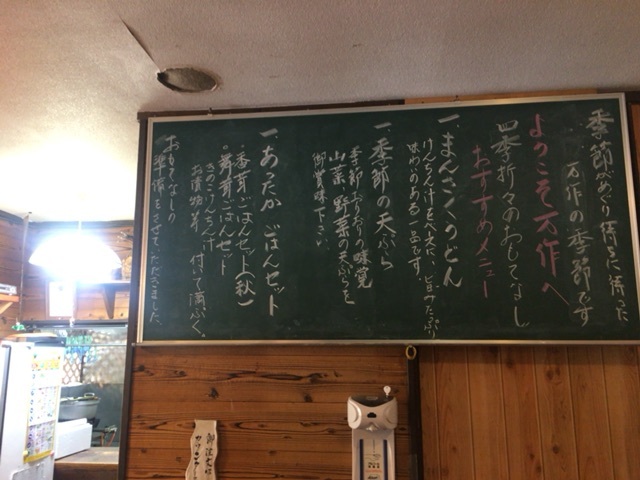 季節がめぐり待ちに待った
万作の季節です
ようこそ万作へ
四季折々のおもてなし
おすすめメニュー
一.まんさくうどん
けんちん汁をベースに、旨みたっぷり
味わいのある一品です。
一.季節の天ぷら
季節折々の味覚
山菜、野菜の天ぷらを
御賞味下さい
一.あったか ごはんセット
・香茸ごはんセット(秋)
・舞茸ごはんセット
きのこけんちん汁
お漬物等 付いて満ぷく。
おもてなしの
準備をさせていただきました。
御注文は
カウンター